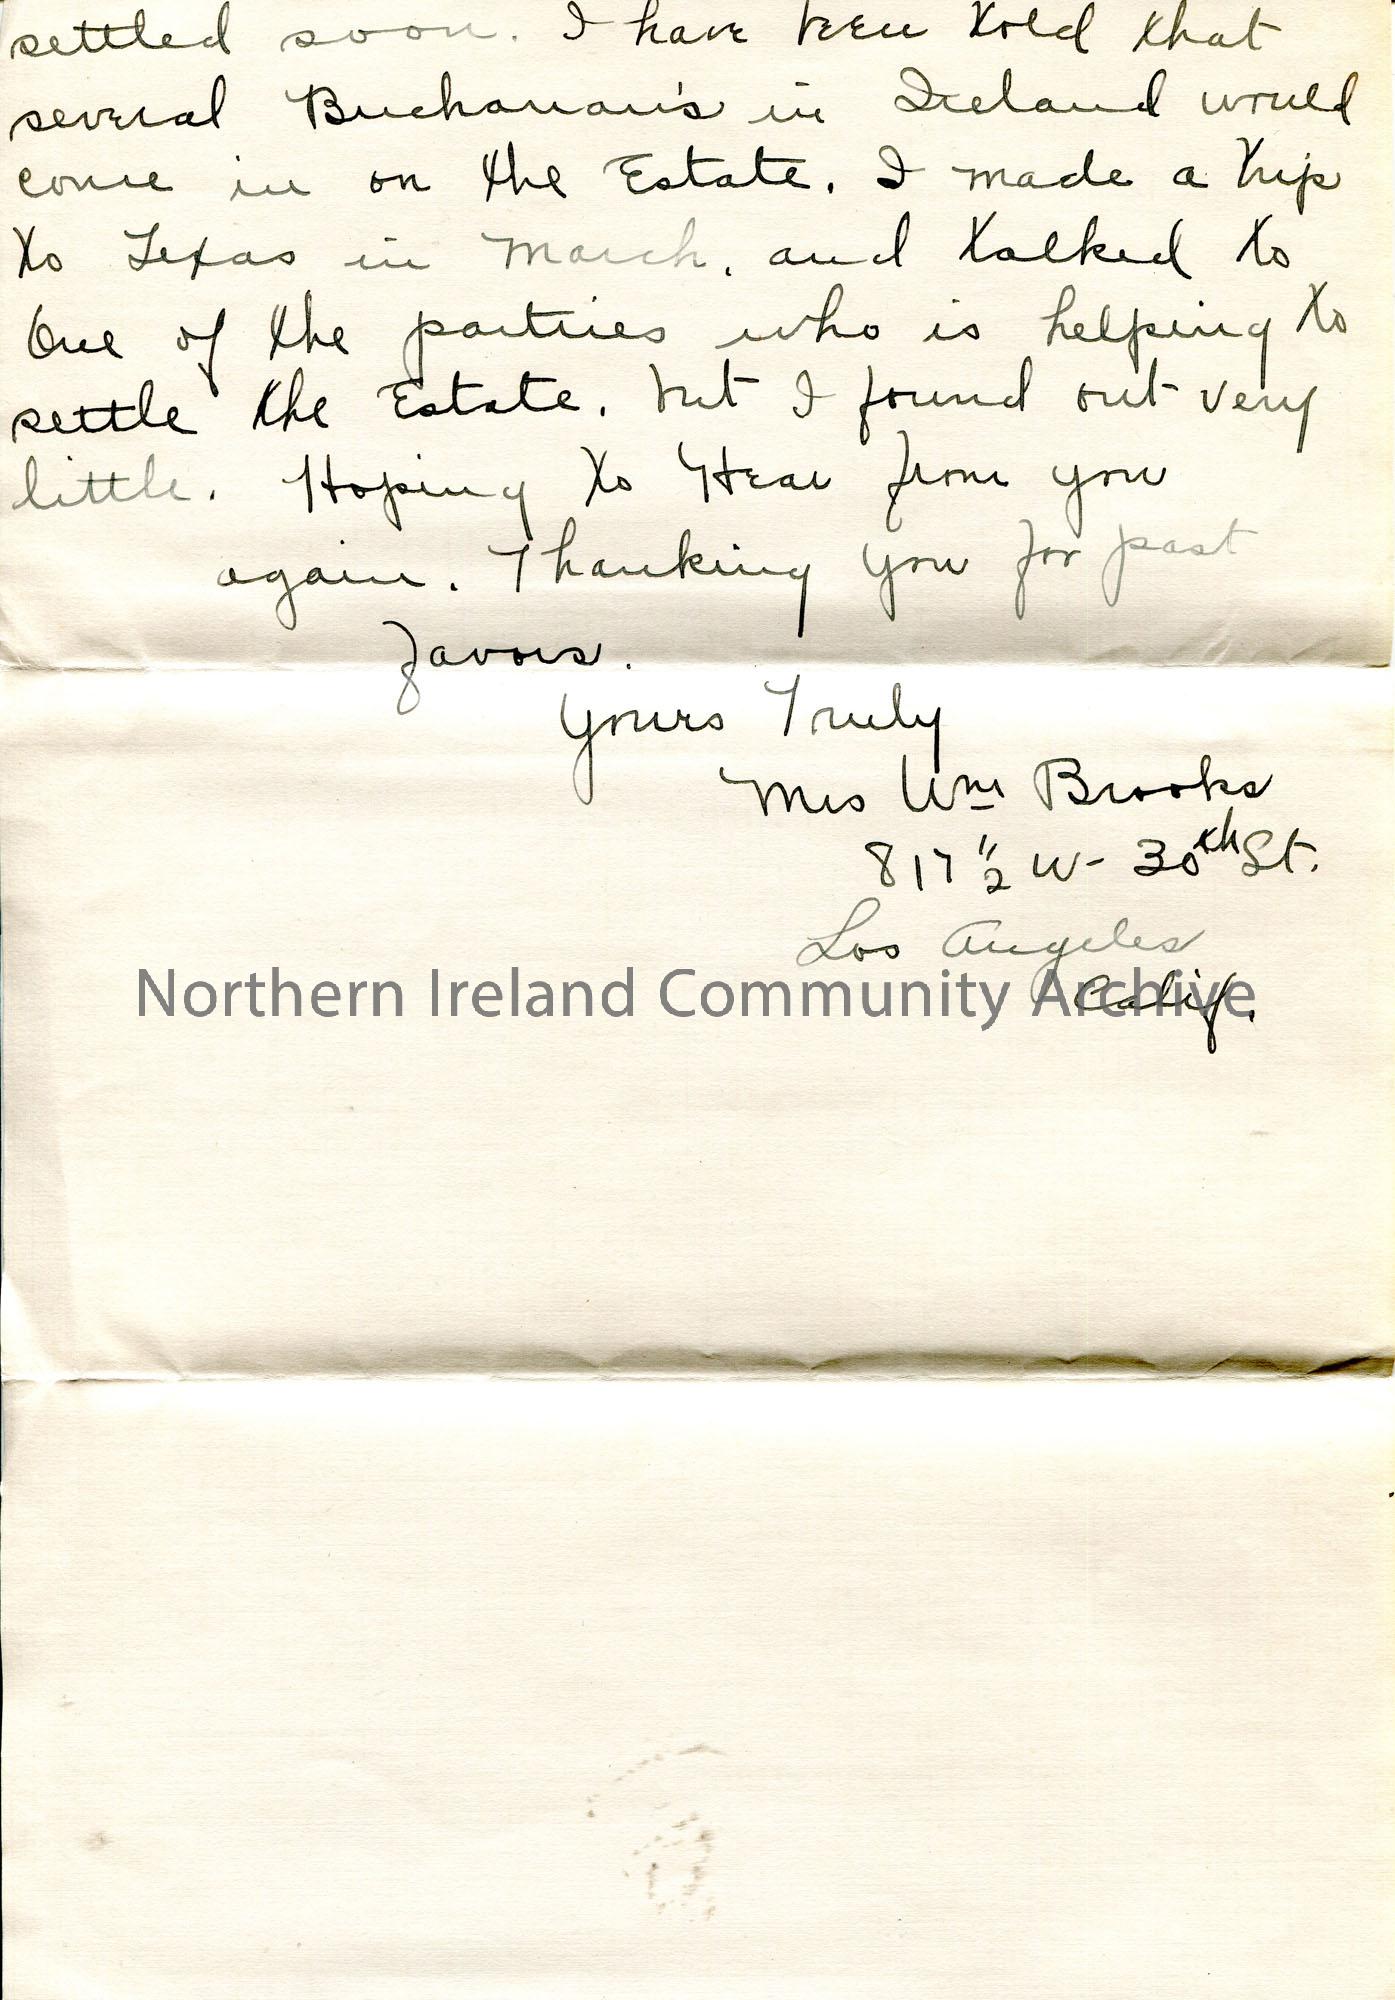 settled soon. I have been told that
several Buchanan's in Ireland would
come in on the Estate. I made a trip
to Texas in March, and talked to
One of the parties who is helping to
settle the Estate, but I found out very
little. Hoping to Hear from you
again. Thanking you for past
favors.
Yours Truly
Mrs Wm Brooks
817 1/2 W- 30th St.
Los Angeles
Calif.
Northern Ireland Community Archive